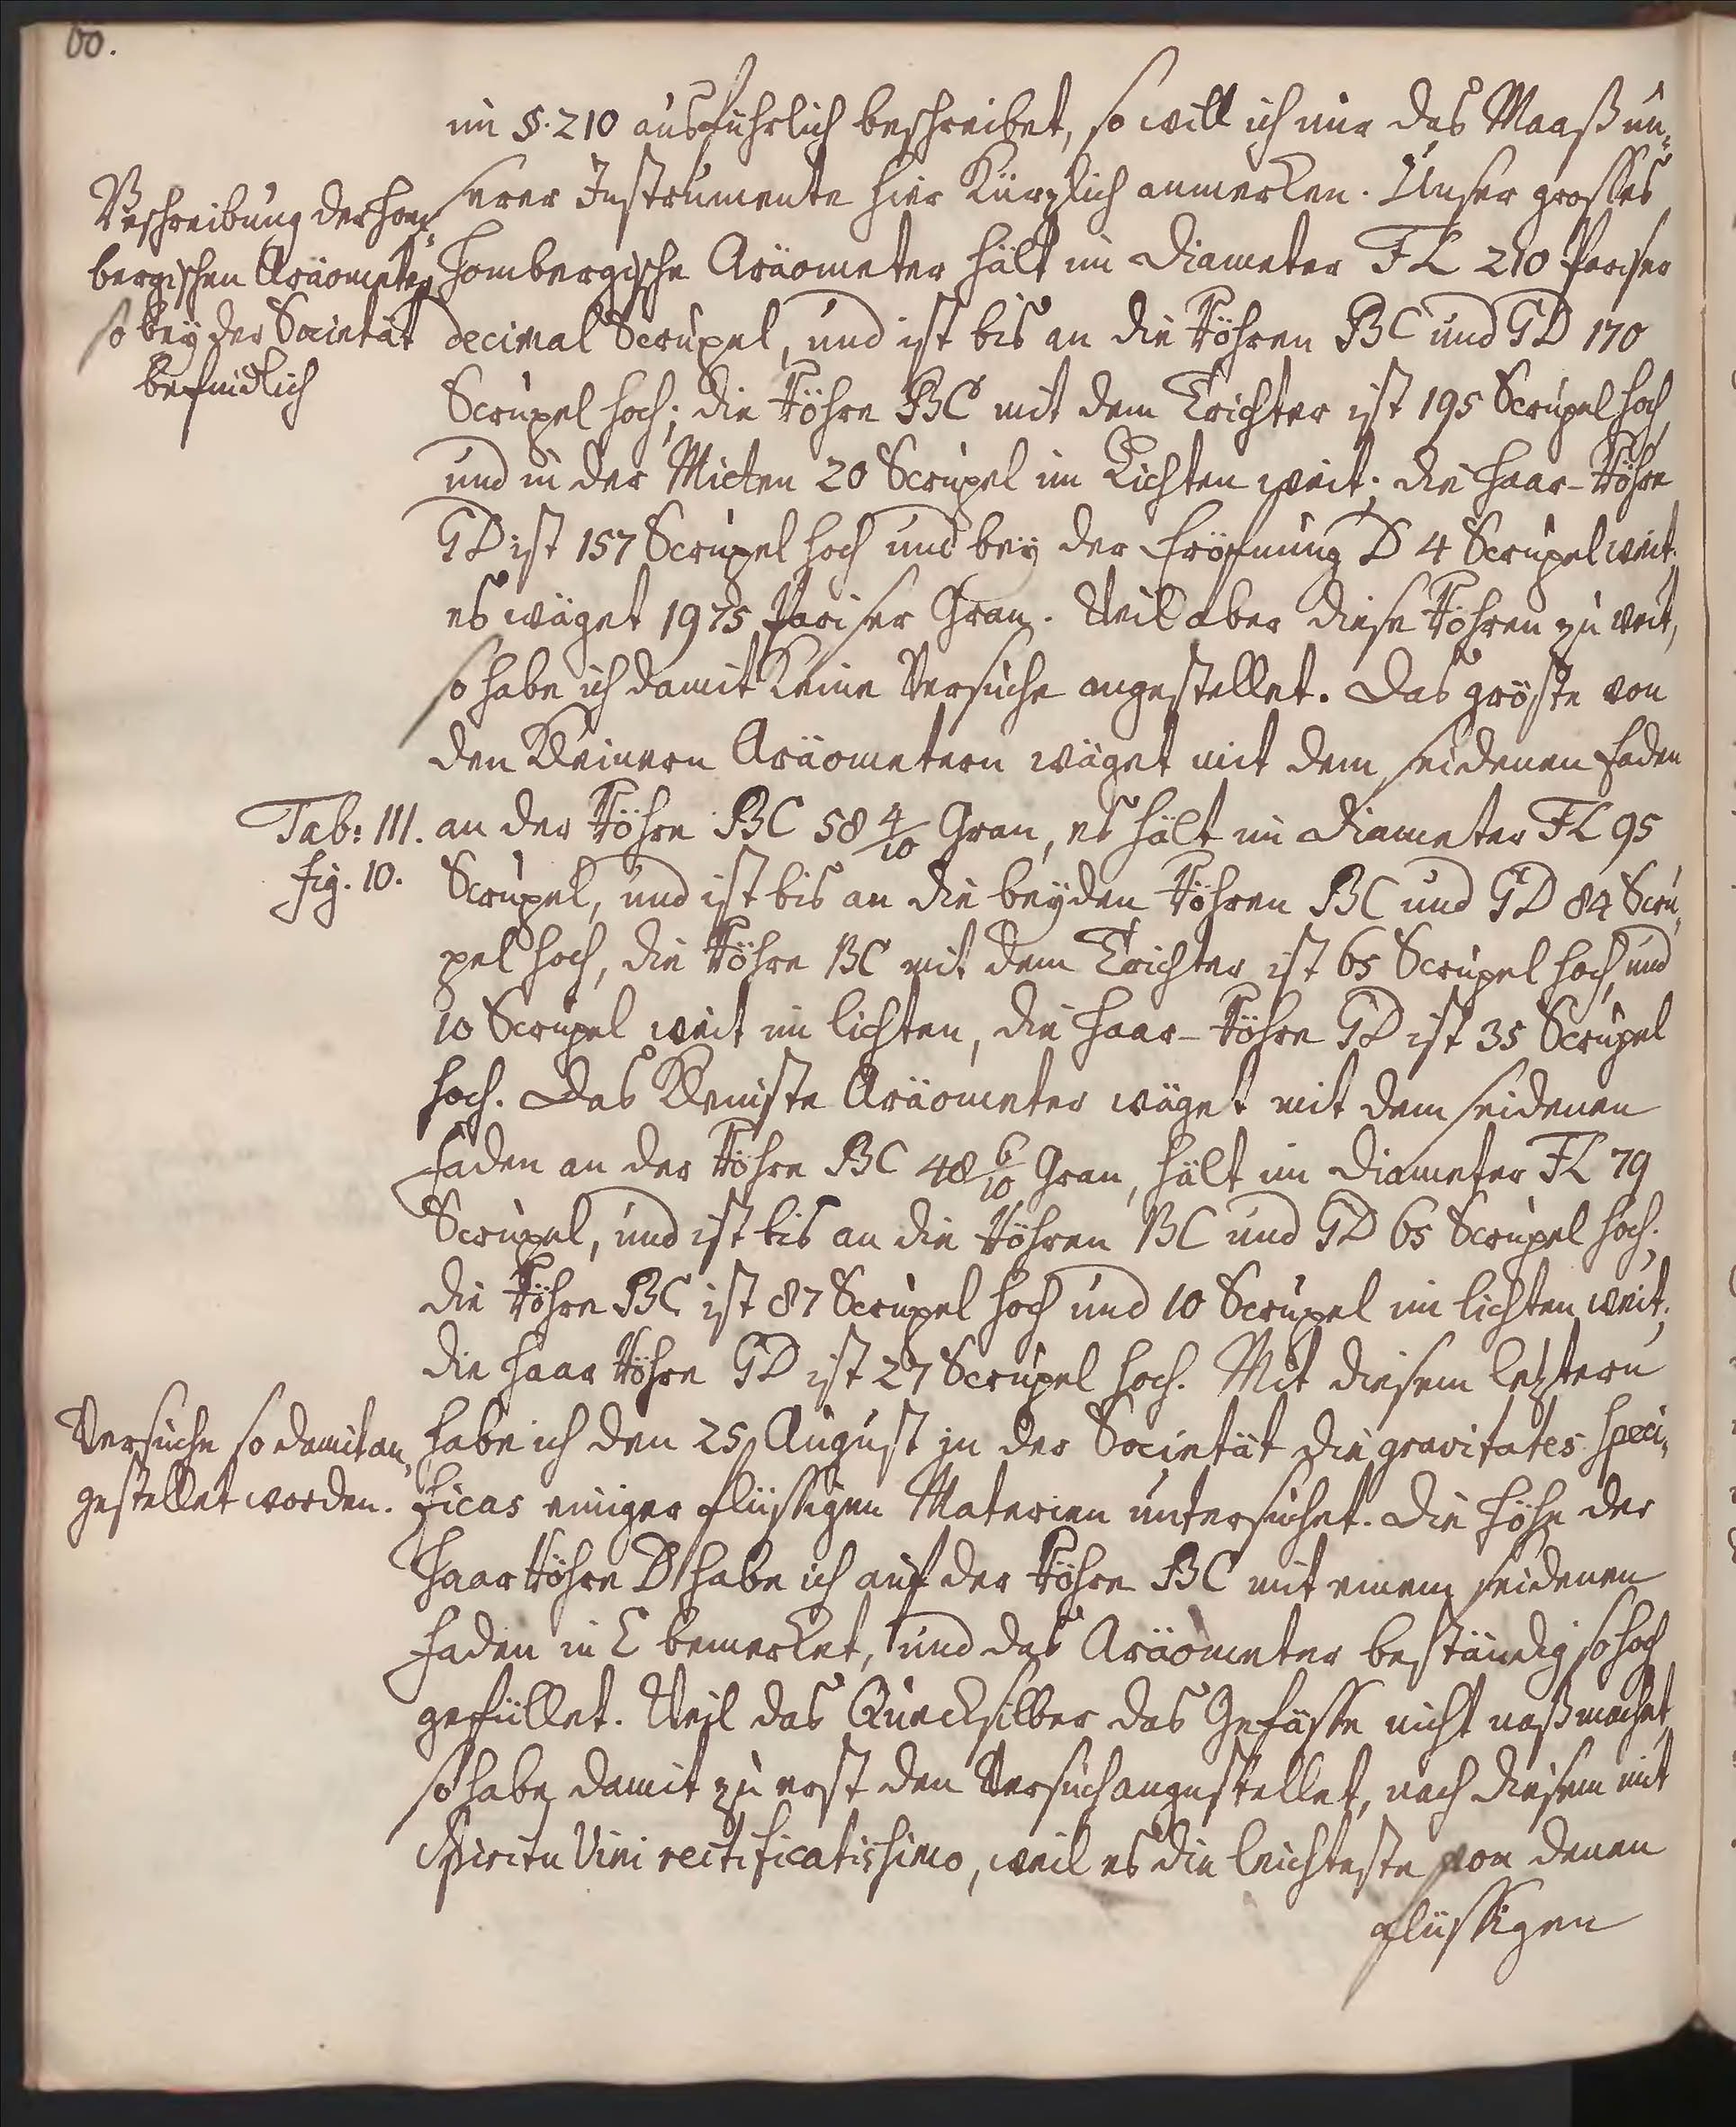 60.
im §. 210 ausführlich beschreibet, so will ich nur das Maaß un-
serer Instrumente hier Kürzlich anmerken. Unser grosses
Beschreibung der Hom-
bergischen Aräometer
so bey der Societät
befindlich
Hombergische Aräometer hält im Diameter FL 210 Pariser
decimal Scrupel, und ist bis an die Röhren BC und GD 170
Scrupel hoch; die Röhre BC mit dem Trichter ist 195 Scrupel hoch
und in der Mitten 20 Scrupel im Lichten weit; die Haar-Röhre
GD ist 157 Scrupel hoch und bey der Eröfnung D 4 Scrupel weit;
es wäget 1975 Pariser Gran. Weil aber diese Röhren zu weit,
so habe ich damit Keine Versuche angestellet. Das gröste von
den Kleinern Aräometern wäget mit dem seidenen Faden
Tab: III.
fig. 10.
an der Röhre BC 58 4/10 Gran, es hält im Diameter FL 95
Scrupel, und ist bis an die beyden Röhren BC und GD 84 Scru-
pel hoch, die Röhre BC mit dem Trichter ist 65 Scrupel hoch, und
10 Scrupel weit im lichten, die Haar-Röhre GD ist 35 Scrupel
hoch. Das Kleinste Aräometer wäget mit dem seidenen
Faden an der Röhre BC 48 6/10 Gran, hält im Diameter FL 79
Scrupel, und ist bis an die Röhren BC und GD 65 Scrupel hoch;
die Röhre BC ist 87 Scrupel hoch und 10 Scrupel im lichten weit;
die Haar Röhre GD ist 27 Scrupel hoch. Mit diesem letztern
Versuche so damit an-
gestellet worden.
habe ich den 25 August in der Societät die gravitates speci-
ficas einiger flüssigen Materien untersuchet. Die Höhe der
Haar Röhre D habe ich auf der Röhre BC mit einem seidenen
Faden in E bemerket, und das Aräometer beständig so hoch
gefüllet. Weil das Quecksilber das Gefässe nicht naß machet,
so habe damit zu erst den Versuch angestellet, nach diesem mit
Spiritu Vini rectificatissimo, weil es die leichteste von denen
flüssigen